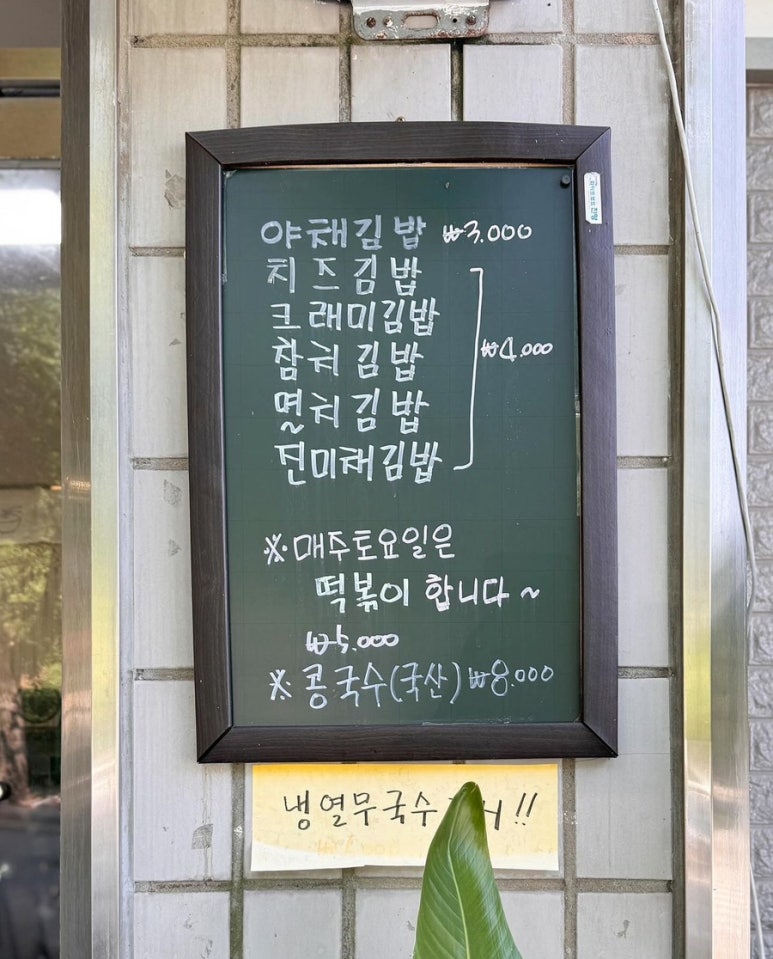 야채김밥 ₩3.000
치즈김밥
크래미김밥
참치김밥 ₩4.000
멸치김밥
진미채김밥
※매주토요일은
떡볶이 합니다~
₩5.000
※콩국수(국산)₩8.000
냉열무국수 !!